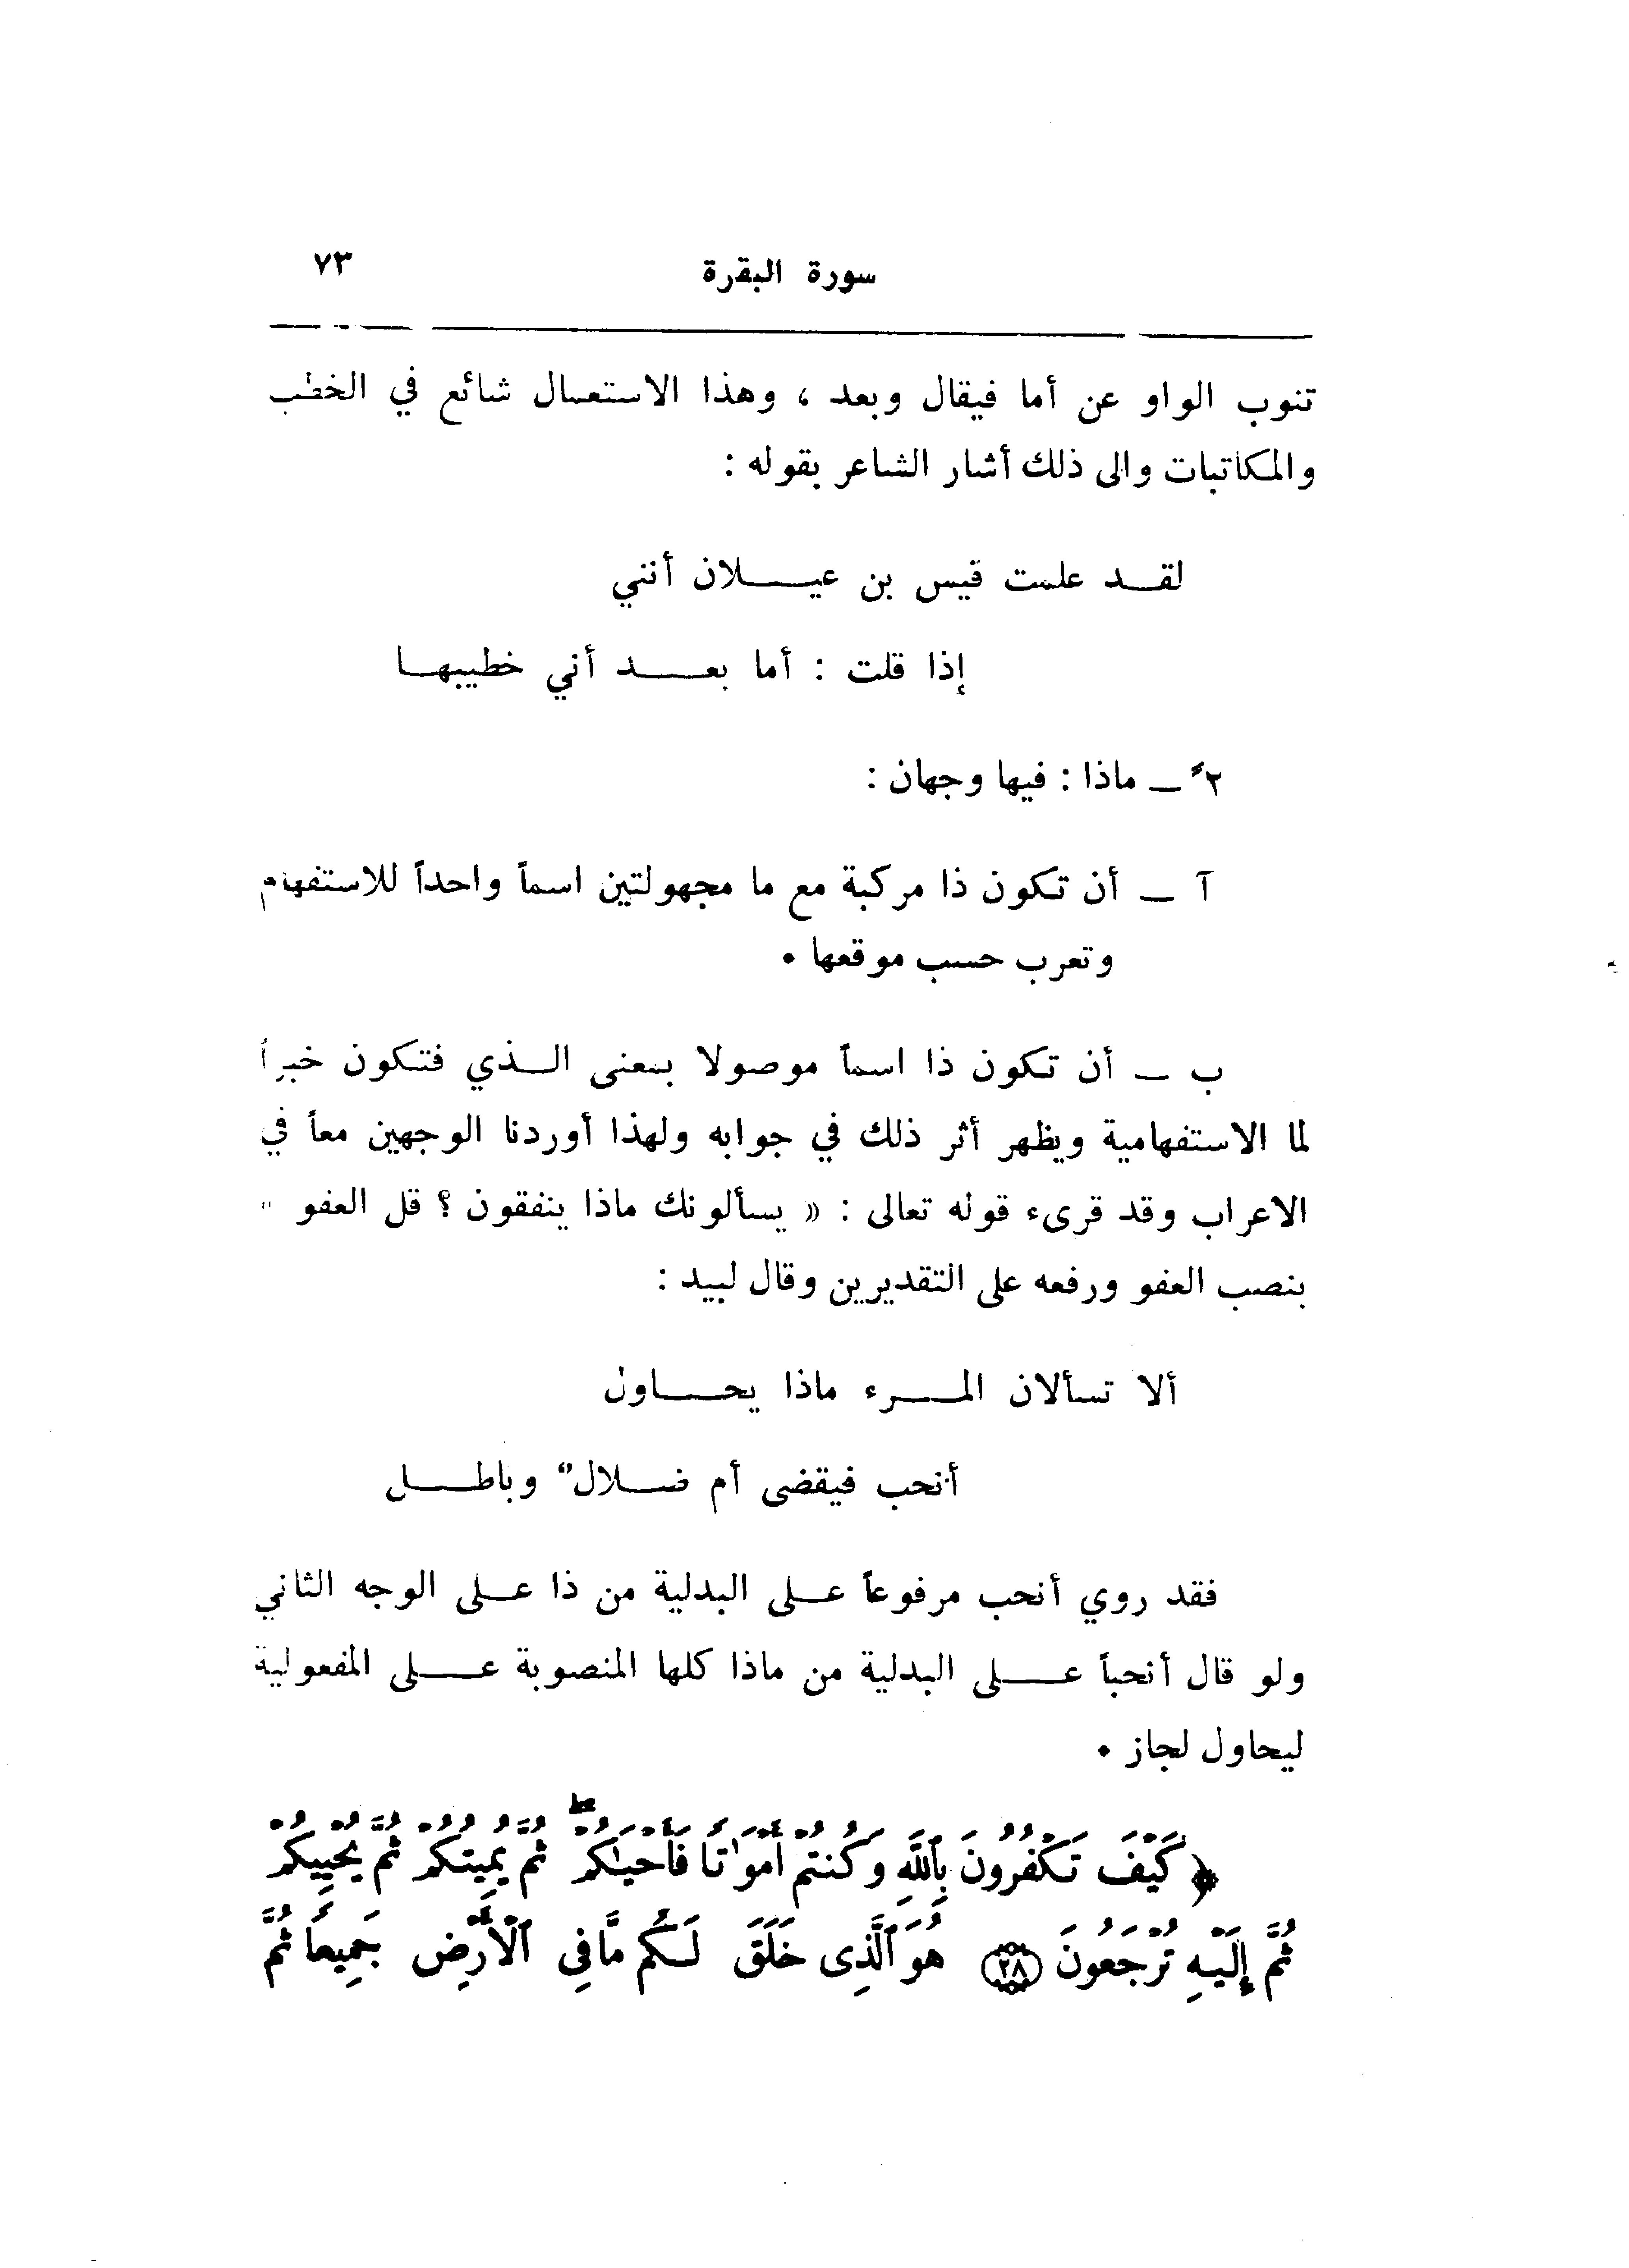 سورة البقرة ٧٣
تنوب الواو عن أما فيقال وبعد ، وهذا الاستعمال شائع في الخطب
والمكاتبات والى ذلك أشار الشاعر بقوله :
لقـد علمت قيس بن عيـــلان أنني
إذا قلت : أما بعـــد أني خطيبهـا
٢ً ـ ماذا : فيها وجهان :
آ ـ أن تكون ذا مركبة مع ما مجهولتين اسماً واحداً للاستفهام
وتعرب حسب موقعها .
ب ـ أن تكون ذا اسماً موصولا بمعنى الـذي فتكون خبراً
لما الاستفهامية ويظهر أثر ذلك في جوابه ولهذا أوردنا الوجهين معاً في
الاعراب وقد قرىء قوله تعالى : « يسألونك ماذا ينفقون ؟ قل العفو »
بنصب العفو ورفعه على التقديرين وقال لبيد :
ألا تسألان المـــرء ماذا يحـــاول
أنحب فيقضى أم ضــلالٌ وباطــل
فقد روي أنحب مرفوعاً عـلى البدلية من ذا عـلى الوجه الثاني
ولو قال أنحباً عـــلى البدلية من ماذا كلها المنصوبة عـــلى المفعولية
ليحاول لجاز .
﴿ كَيْفَ تَكْفُرُونَ بِٱللَّهِ وَكُنتُمْ أَمْوَٰتًا فَأَحْيَـٰكُمْ ۖ ثُمَّ يُمِيتُكُمْ ثُمَّ يُحْيِيكُمْ
ثُمَّ إِلَيْهِ تُرْجَعُونَ ﴿٢٨﴾ هُوَ ٱلَّذِى خَلَقَ لَكُم مَّا فِى ٱلْأَرْضِ جَمِيعًا ثُمَّ